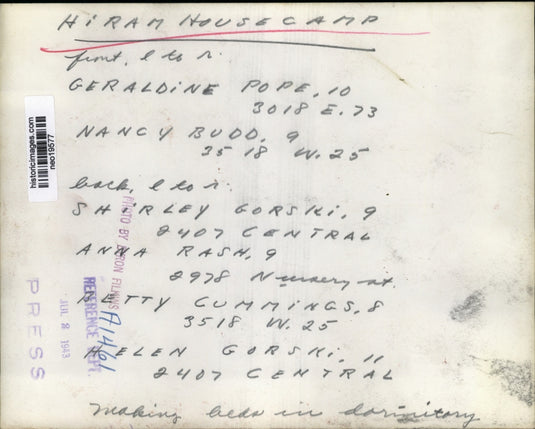 HIRAM HOUSE CAMP
front, l to r.
GERALDINE POPE, 10
3018 E. 73
NANCY BUDD, 9
3518 W. 25
back, l to r.
SHIRLEY GORSKI, 9
2407 CENTRAL
ANNA RASH, 9
2978 Nursery st.
BETTY CUMMINGS, 8
3518 W. 25
HELEN GORSKI, 11
2407 CENTRAL
Making beds in dormitory
historicimages.com
neo19577
PHOTO BY BYRON FILKINS
REFERENCE DEPT.
JUL 2 1943
PRESS